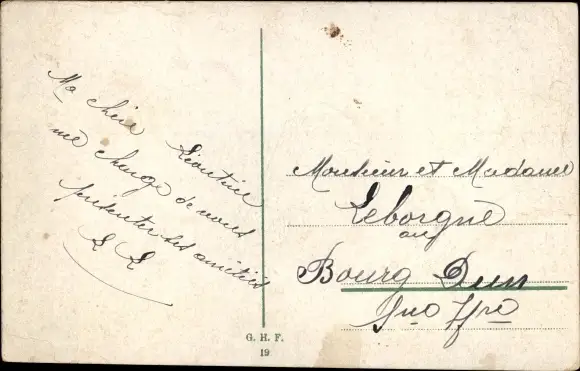 Ma chère Léontine
me charge de vous
présenter ses amitiés
L L
Monsieur et Madame
Leborgne
au
Bourg Dun
Sne Ifre
G. H. F.
19